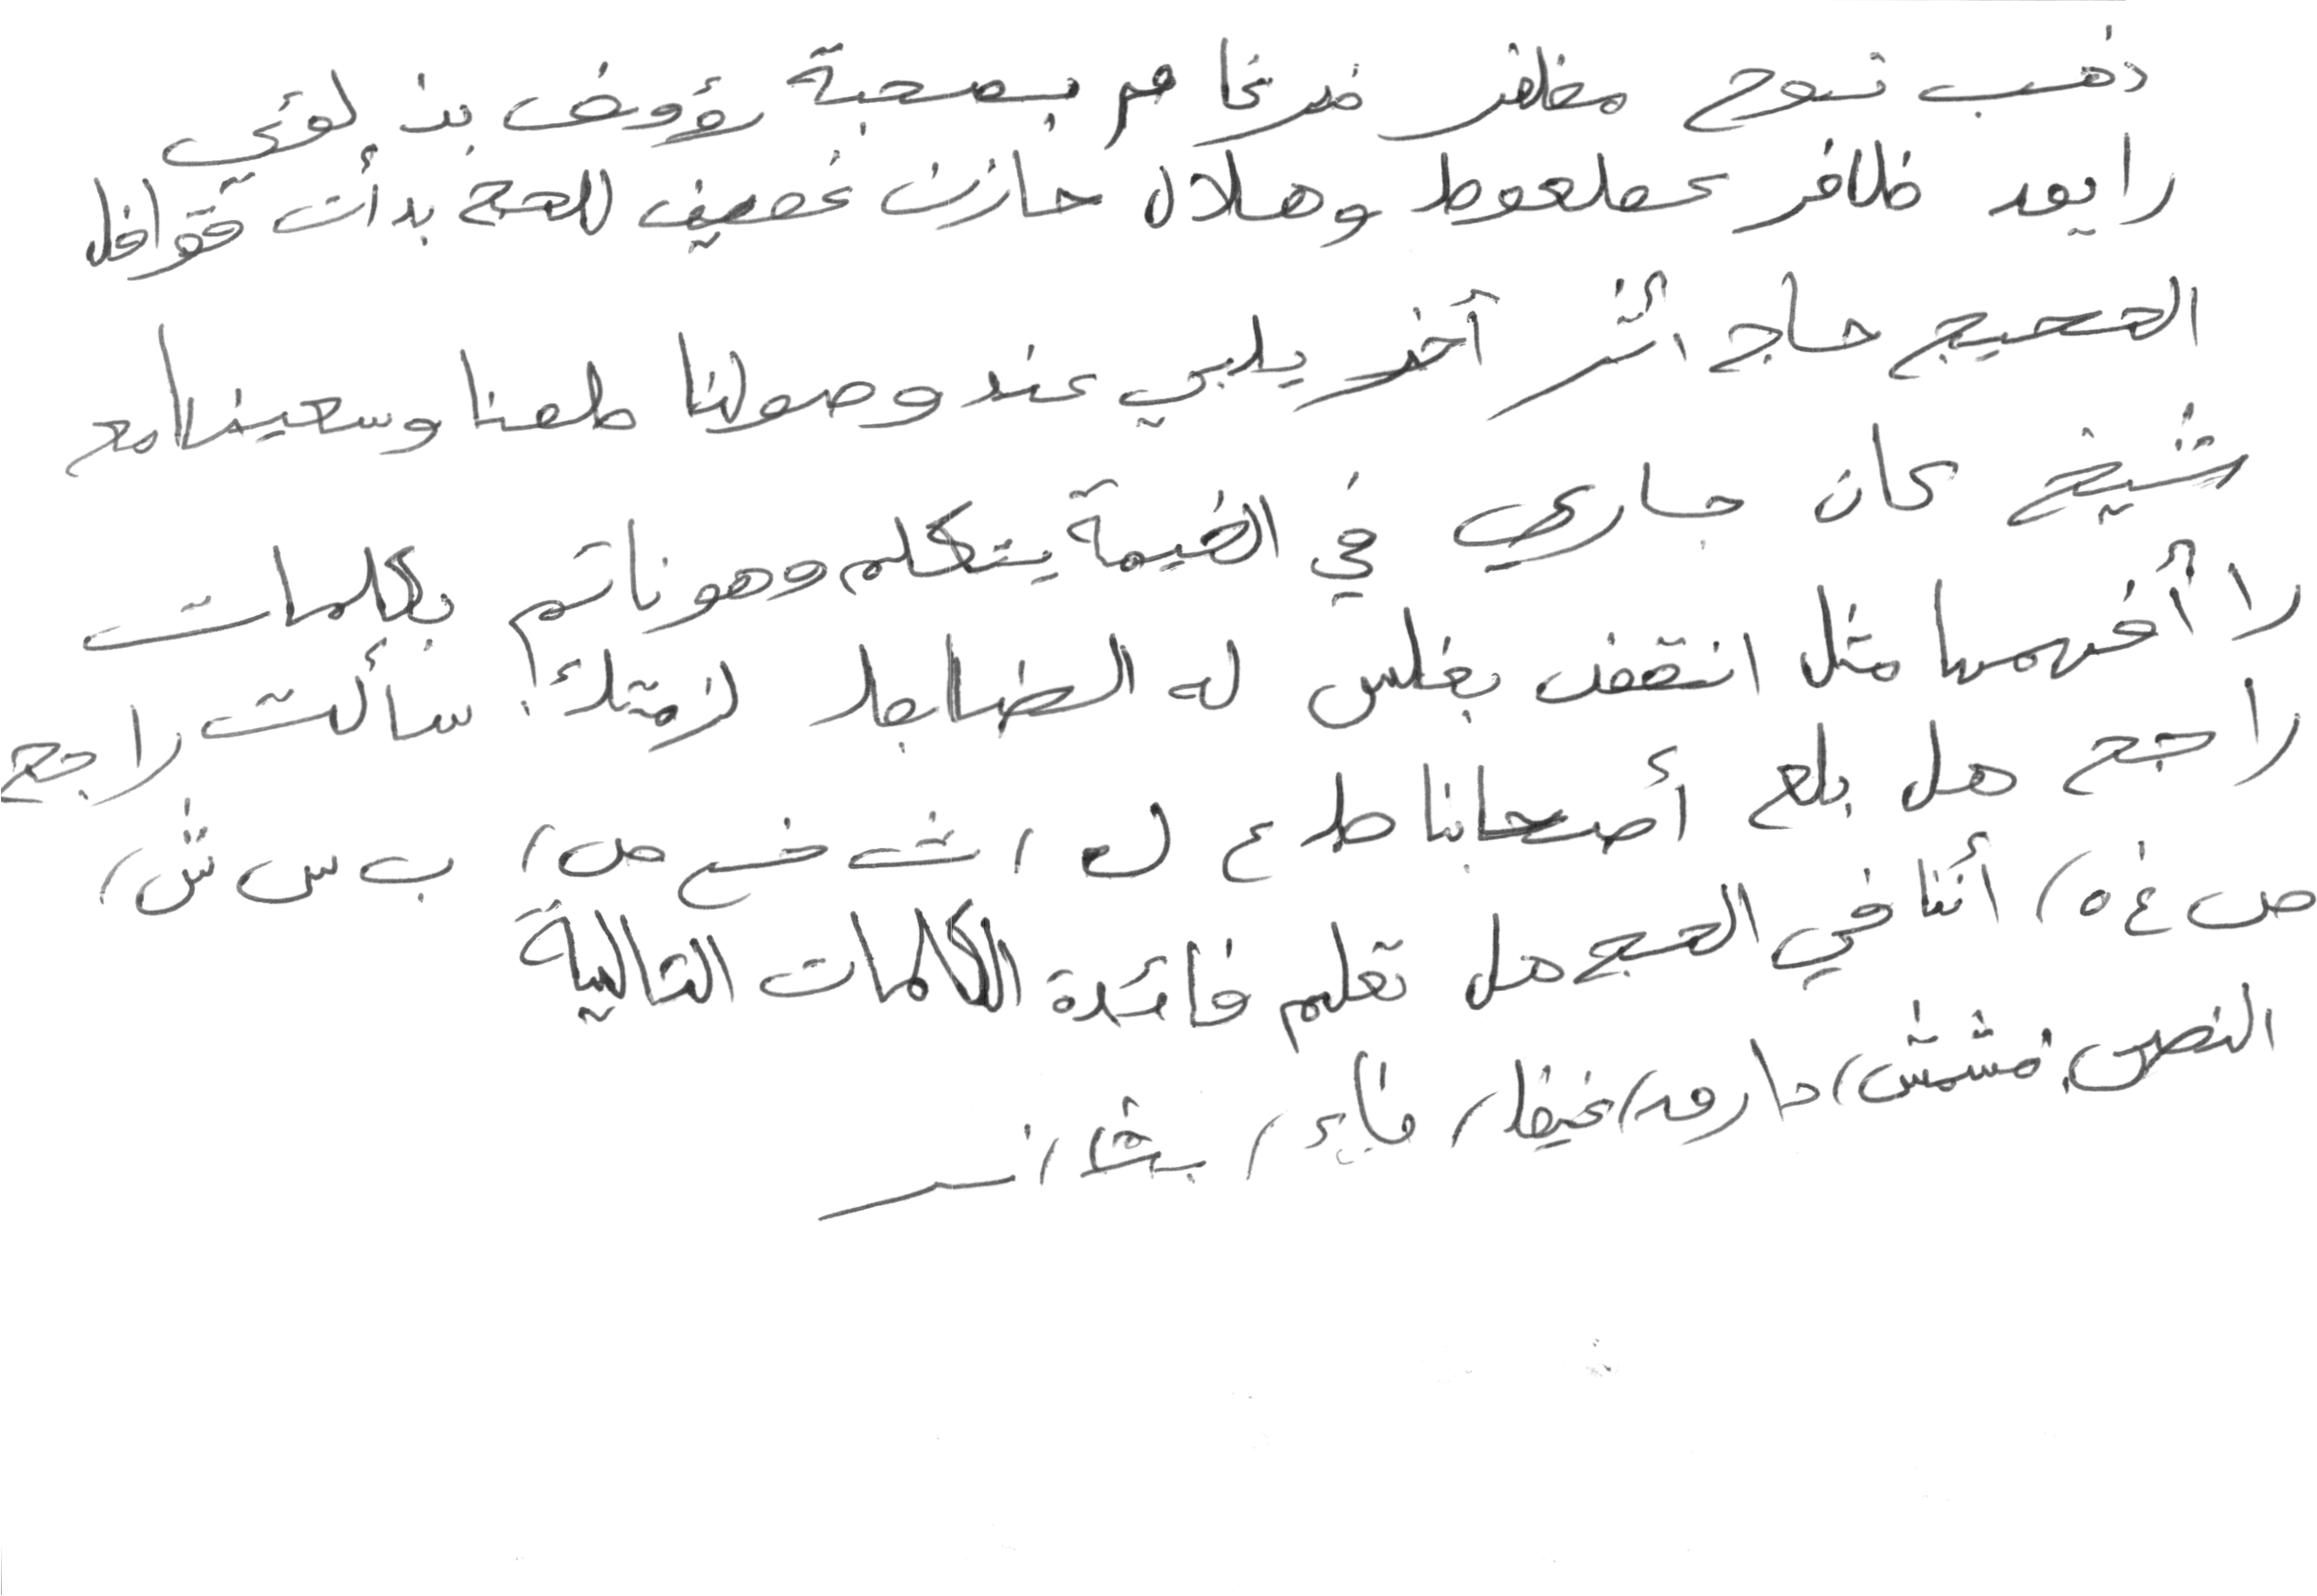 ذهب نوح مظفر ضرغام بصحبة رؤوف بن لؤي
رايعد ظافر عطعوط وهلال حازن غضيف للحج بدأت قوافل
الحجيج حاج اثر آخر يلبي عند وصولنا طفنا وسعينا مع
شيخ كان جاري في الخيمة يتكلم وهو نائم بكلمات
لا أفهمها مثل انقفف بغلس له الضابط لزمتك. سألت راجح
راجح هل بلع أصحابنا ط ع ل، ث خ ص، ب س ش،
ص غ ه، أننا في الحج هل تعلم فائدة الكلمات التالية
النص. مشمش، دارهه، غيظ،